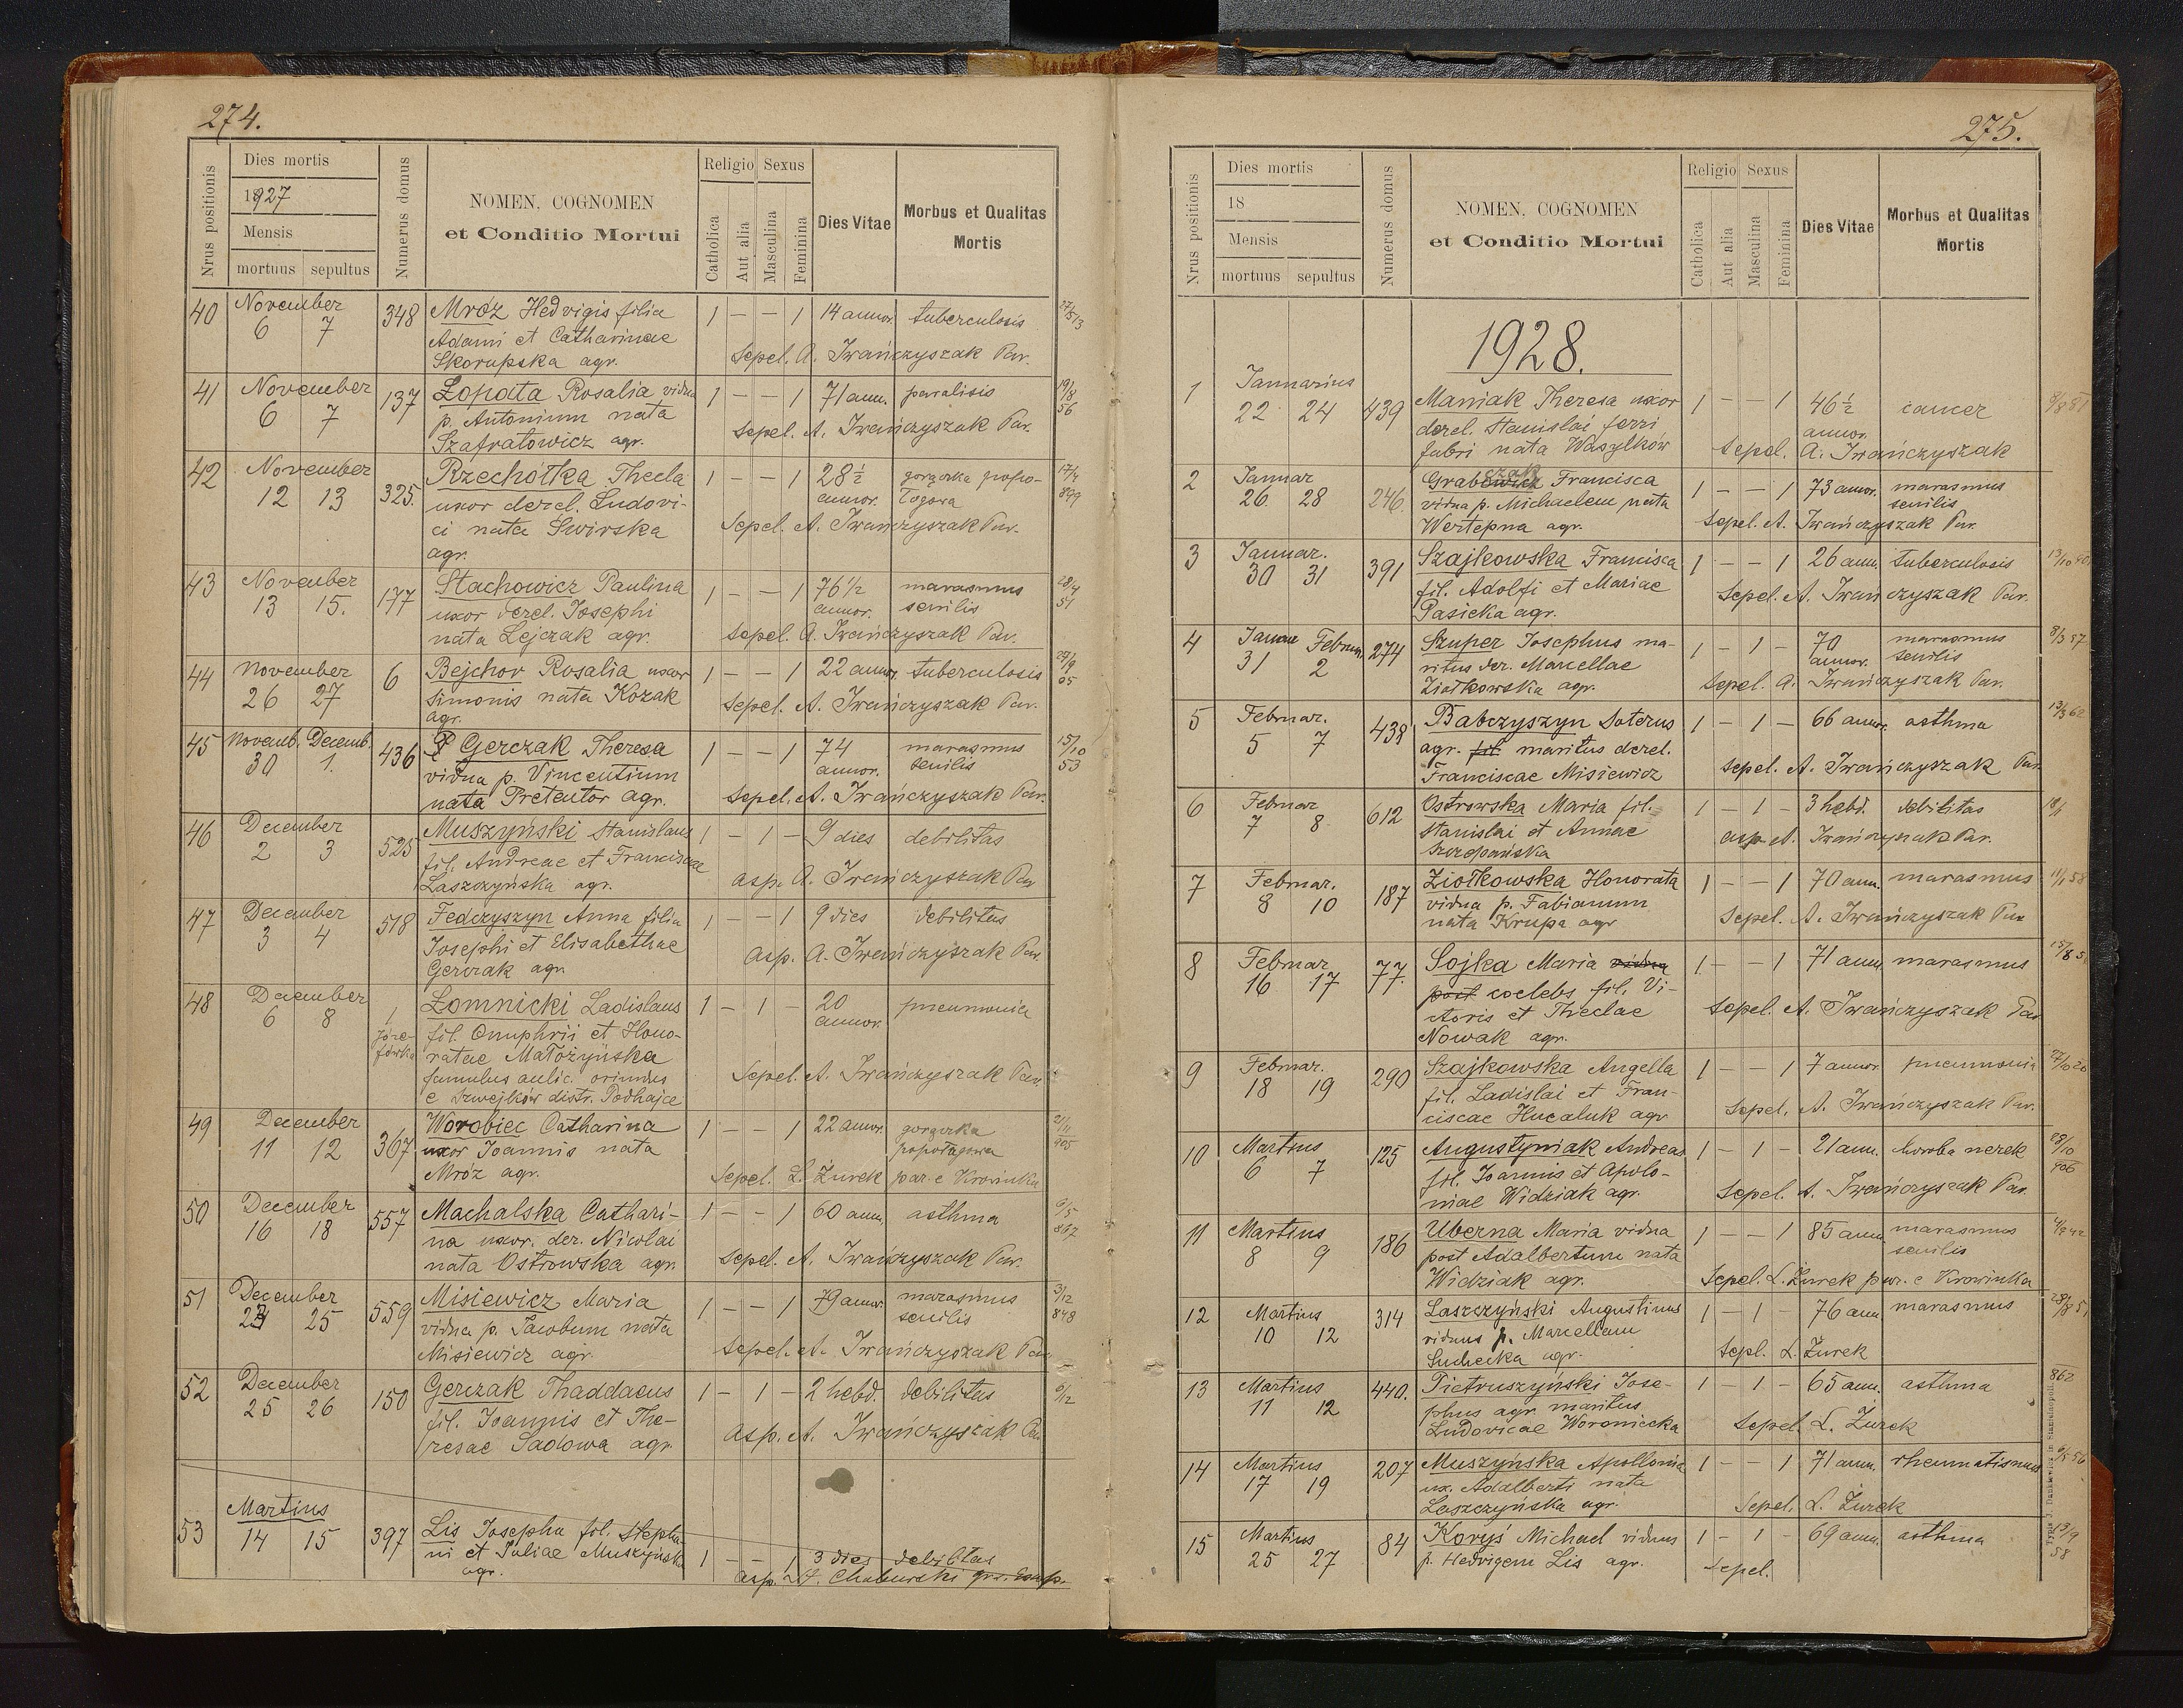 274.
Nrus positionis
Dies mortis
1927
Mensis
mortuus sepultus
Numerus domus
NOMEN, COGNOMEN
et Conditio Mortui
Religio Sexus
Catholica
Aut alia
Masculina
Feminina
Dies Vitae
Morbus et Qualitas
Mortis
40 November 6 7 348 Mróz Hedvigis filia 1 – – 1 14 annor. tuberculosis
Adami et Catharinae
Skorupska agr. Sepel. A. Iwańczyszak Par.
41 November 6 7 137 Łopata Rosalia vidua 1 – – 1 71 ann. paralisis 19/8 56
p. Antonium nata
Szafratowicz agr. Sepel. A. Iwańczyszak Par.
42 November 12 13 325. Rzechótka Thecla 1 – – 1 28 ½ annor. gorączka połogowa 17/4 899
uxor derel. Ludovi-
ci nata Swirska Sepel. A. Iwańczyszak Par.
agr.
43 November 13 15. 177 Stachowicz Paulina 1 – – 1 76 1/2 annor. marasmus senilis 28/4 51
uxor derel. Josephi
nata Lejczak agr. Sepel. A. Iwańczyszak Par.
44 November 26 27 6 Bejchor Rosalia uxor 1 – – 1 22 annor. tuberculosis 05
Simonis nata Kozak Sepel. A. Iwańczyszak Par.
agr.
45 Novemb. Decemb. 30 1. 436 Gerczak Theresa 1 – – 1 74 annor. marasmus senilis 15/10 53
vidua p. Vincentium
nata Pretentor agr. Sepel. A. Iwańczyszak Par.
46 December 2 3 525 Muszyński Stanislaus 1 – 1 – 9 dies debilitas
fil. Andreae et Franciscae
Laszczyńska agr. asp. A. Iwańczyszak Par
47 December 3 4 518 Fedczyszyn Anna filia 1 – – 1 9 dies debilitas
Josephi et Elisabethae
Gerczak agr. asp. A. Iwańczyszak Par.
48 December 6 8 1 Józefówka Łomnicki Ladislaus 1 – 1 – 20 annor. pneumonia
fil. Onuphrii et Hono-
ratae Małożyńska
famulus aulic. oriundus Sepel. A. Iwańczyszak Par.
e distr. Podhajce
49 December 11 12 367 Worobiec Catharina 1 – – 1 22 annor. gorączka popołogowa 21/11 905
uxor Joannis nata
Mróz agr. Sepel. L. Żurek par. e Krowinka
50 December 16 18 557 Machalska Cathari- 1 – – 1 60 ann. asthma
na uxor. der. Nicolai
nata Ostrowska agr. Sepel. A. Iwańczyszak Par.
51 December 24 25 559 Misiewicz Maria 1 – – 1 79 annor. marasmus senilis 3/12 848
vidua p. Jacobum nata
Misiewicz agr. Sepel. A. Iwańczyszak Par.
52 December 25 26 150 Gerczak Thaddaeus 1 – 1 – 2 hebd. debilitas 6/12
fil. Joannis et The-
resae Sadowa agr. asp. A. Iwańczyszak Par
53 Martius 14 15 397 Lis Josepha fil. Stepha- 1 – – 1 3 dies debilitas
ni et Juliae Muszyńska
agr. asp.
275.
Nrus positionis
Dies mortis
18
Mensis
mortuus sepultus
Numerus domus
NOMEN, COGNOMEN
et Conditio Mortui
Religio Sexus
Catholica
Aut alia
Masculina
Feminina
Dies Vitae
Morbus et Qualitas
Mortis
1928.
1 Januarius 22 24 439 Maniak Theresa uxor 1 – – 1 46 ½ annor. cancer 8/8 81
derel. Stanislai ferri
fabri nata Wasylków Sepel. A. Iwańczyszak
2 Januar 26. 28 246. Grabczak Francisca 1 – – 1 73 annor. marasmus senilis
vidua p. Michaelem nata
Wertepna agr. Sepel. A. Iwańczyszak Par.
3 Januar. 30 31 391 Szajkowska Francisca 1 – – 1 26 ann. tuberculosis
fil. Adolfi et Mariae
Pasieka agr. Sepel. A. Iwańczyszak Par.
4 31 2 274 Szuper Josephus ma- 1 – 1 – 70 annor. marasmus senilis 8/3 57
ritus der. Marcellae
Ziółkowska agr. Sepel. A. Iwańczyszak Par.
5 Februar. 5 7 438 Babczyszyn Soterus 1 – 1 – 66 annor. asthma 13/3 62
agr. fil. maritus derel.
Franciscae Misiewicz Sepel. A. Iwańczyszak Par.
6 Februar 7 8 612 Ostrowska Maria fil. 1 – 1 – 3 hebd. debilitas 18/1
Stanislai et Annae
Szczepańska asp. A. Iwańczyszak Par.
7 Februar. 8 10 187 Ziołkowska Honorata 1 – – 1 70 ann. marasmus 11/1 58
vidua p. Fabianum
nata Krupa agr Sepel. A. Iwańczyszak Par
8 Februar 16 17 77. Sojka Maria vidua 1 – – 1 71 ann. marasmus
post coelebs fil. Vi-
ctoris et Theclae Sepel. A. Iwańczyszak Par
Nowak agr.
9 Februar. 18 19 290 Szajkowska Angella 1 – – 1 7 annor. pneumonia
fil. Ladislai et Fran-
ciscae Hucaluk agr Sepel. A. Iwańczyszak Par.
10 Martius 6 7 125 Augustyniak Andreas 1 – 1 – 21 ann. horoba nerek 28/10 906
fil. Joannis et Apolo-
niae Widziak agr. Sepel. A. Iwańczyszak Par.
11 Martius 8 9 186 Uberna Maria vidua 1 – – 1 85 ann. marasmus senilis
post Adalbertum nata
Widziak agr. Sepel. L. Żurek par. e Krowinka
12 Martius 10 12 314 Laszczyński Augustinus 1 – 1 – 76 ann. marasmus 28/8 51
viduus p. Marcellam
Suchecka agr. Sepl. L. Żurek
13 Martius 11 12 440. Pietruszyński Jose- 1 – 1 – 65 ann. asthma 862
phus agr. maritus
Ludovicae Woroniecka Sepel. L. Żurek
14 Martius 17 19 207 Muszyńska Apollonia 1 – – 1 71 ann. rheumatismus 6/5 56
ux. Adalberti nata
Laszczyńska agr. Sepel. L. Żurek
15 Martius 25 27 84 Koryś Michael viduus 1 – 1 – 69 ann. asthma 13/9 58
p. Hedvigem Lis agr. Sepel.